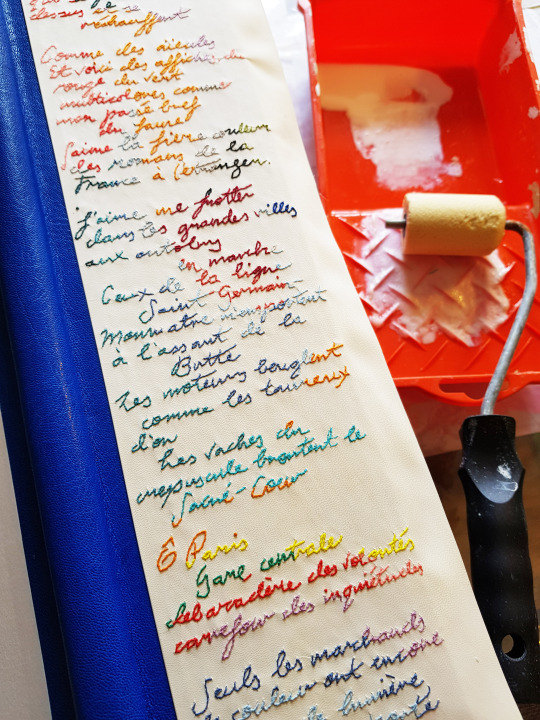 dessus et se
réchauffent
Comme des aïeules
Et voici des affiches, du
rouge du vert
multicolores comme
mon passé bref
du jaune
J'aime la fière couleur
des romans de la
France à l'étranger.
J'aime me frotter
dans les grandes villes
aux autobus
en marche
Ceux de la ligne
Saint-Germain-
Montmatre m'emportent
à l'assaut de la
Butte
Les moteurs beuglent
comme les taureaux
d'or
Les vaches du
crépuscule broutent le
Sacré-Cœur
Ô Paris
Gare centrale
débarcadère des volontés
carrefour des inquiétudes
Seuls les marchands
de couleur ont encore
la lumière